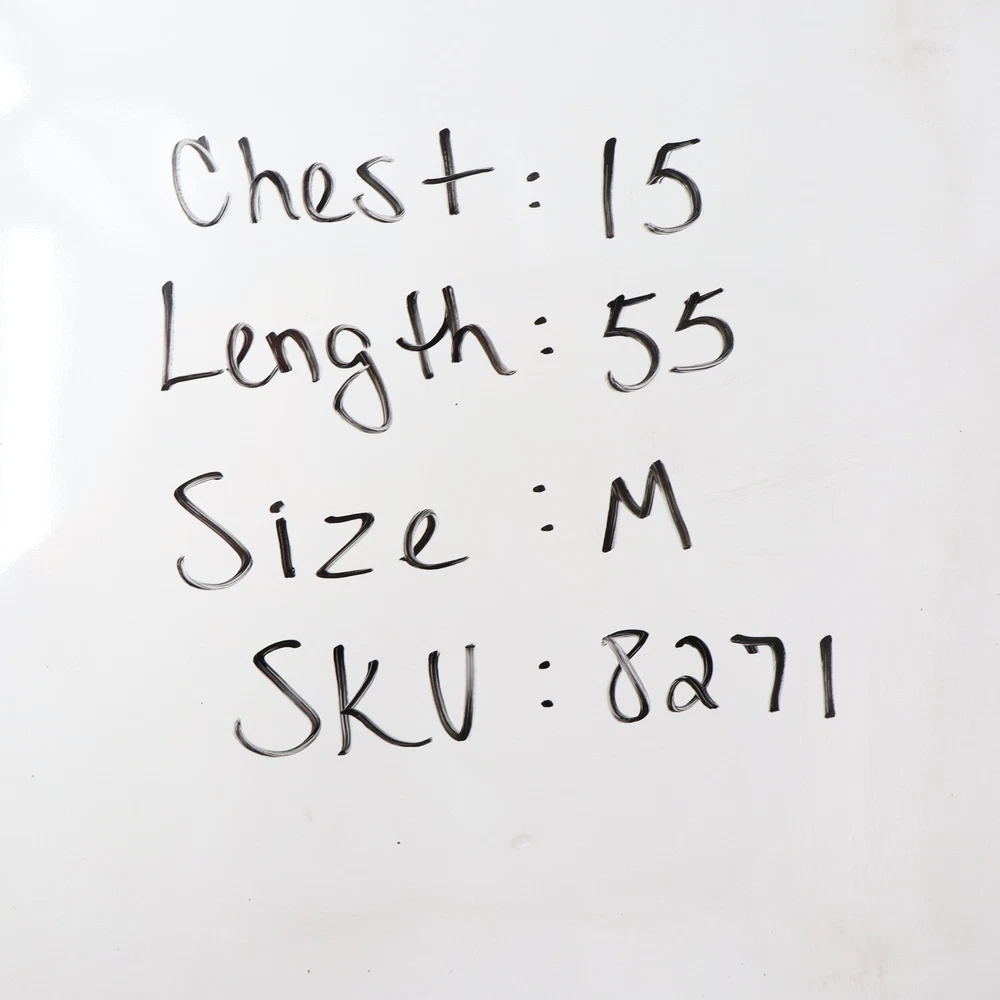 Chest: 15
Length: 55
Size: M
SKU: 8271